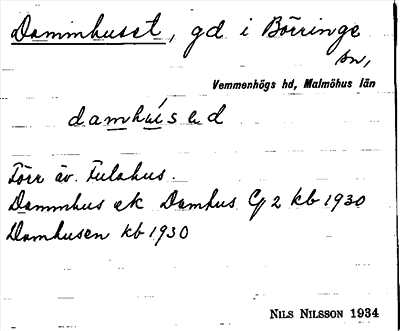 Dammhuset, gd i Börringe
sn,
Vemmenhögs hd, Malmöhus län
damhúsed
Förr äv. Fulahus.
Dammhus ek Damhus Cg2 kb 1930
Damhusen kb 1930
NILS NILSSON 1934